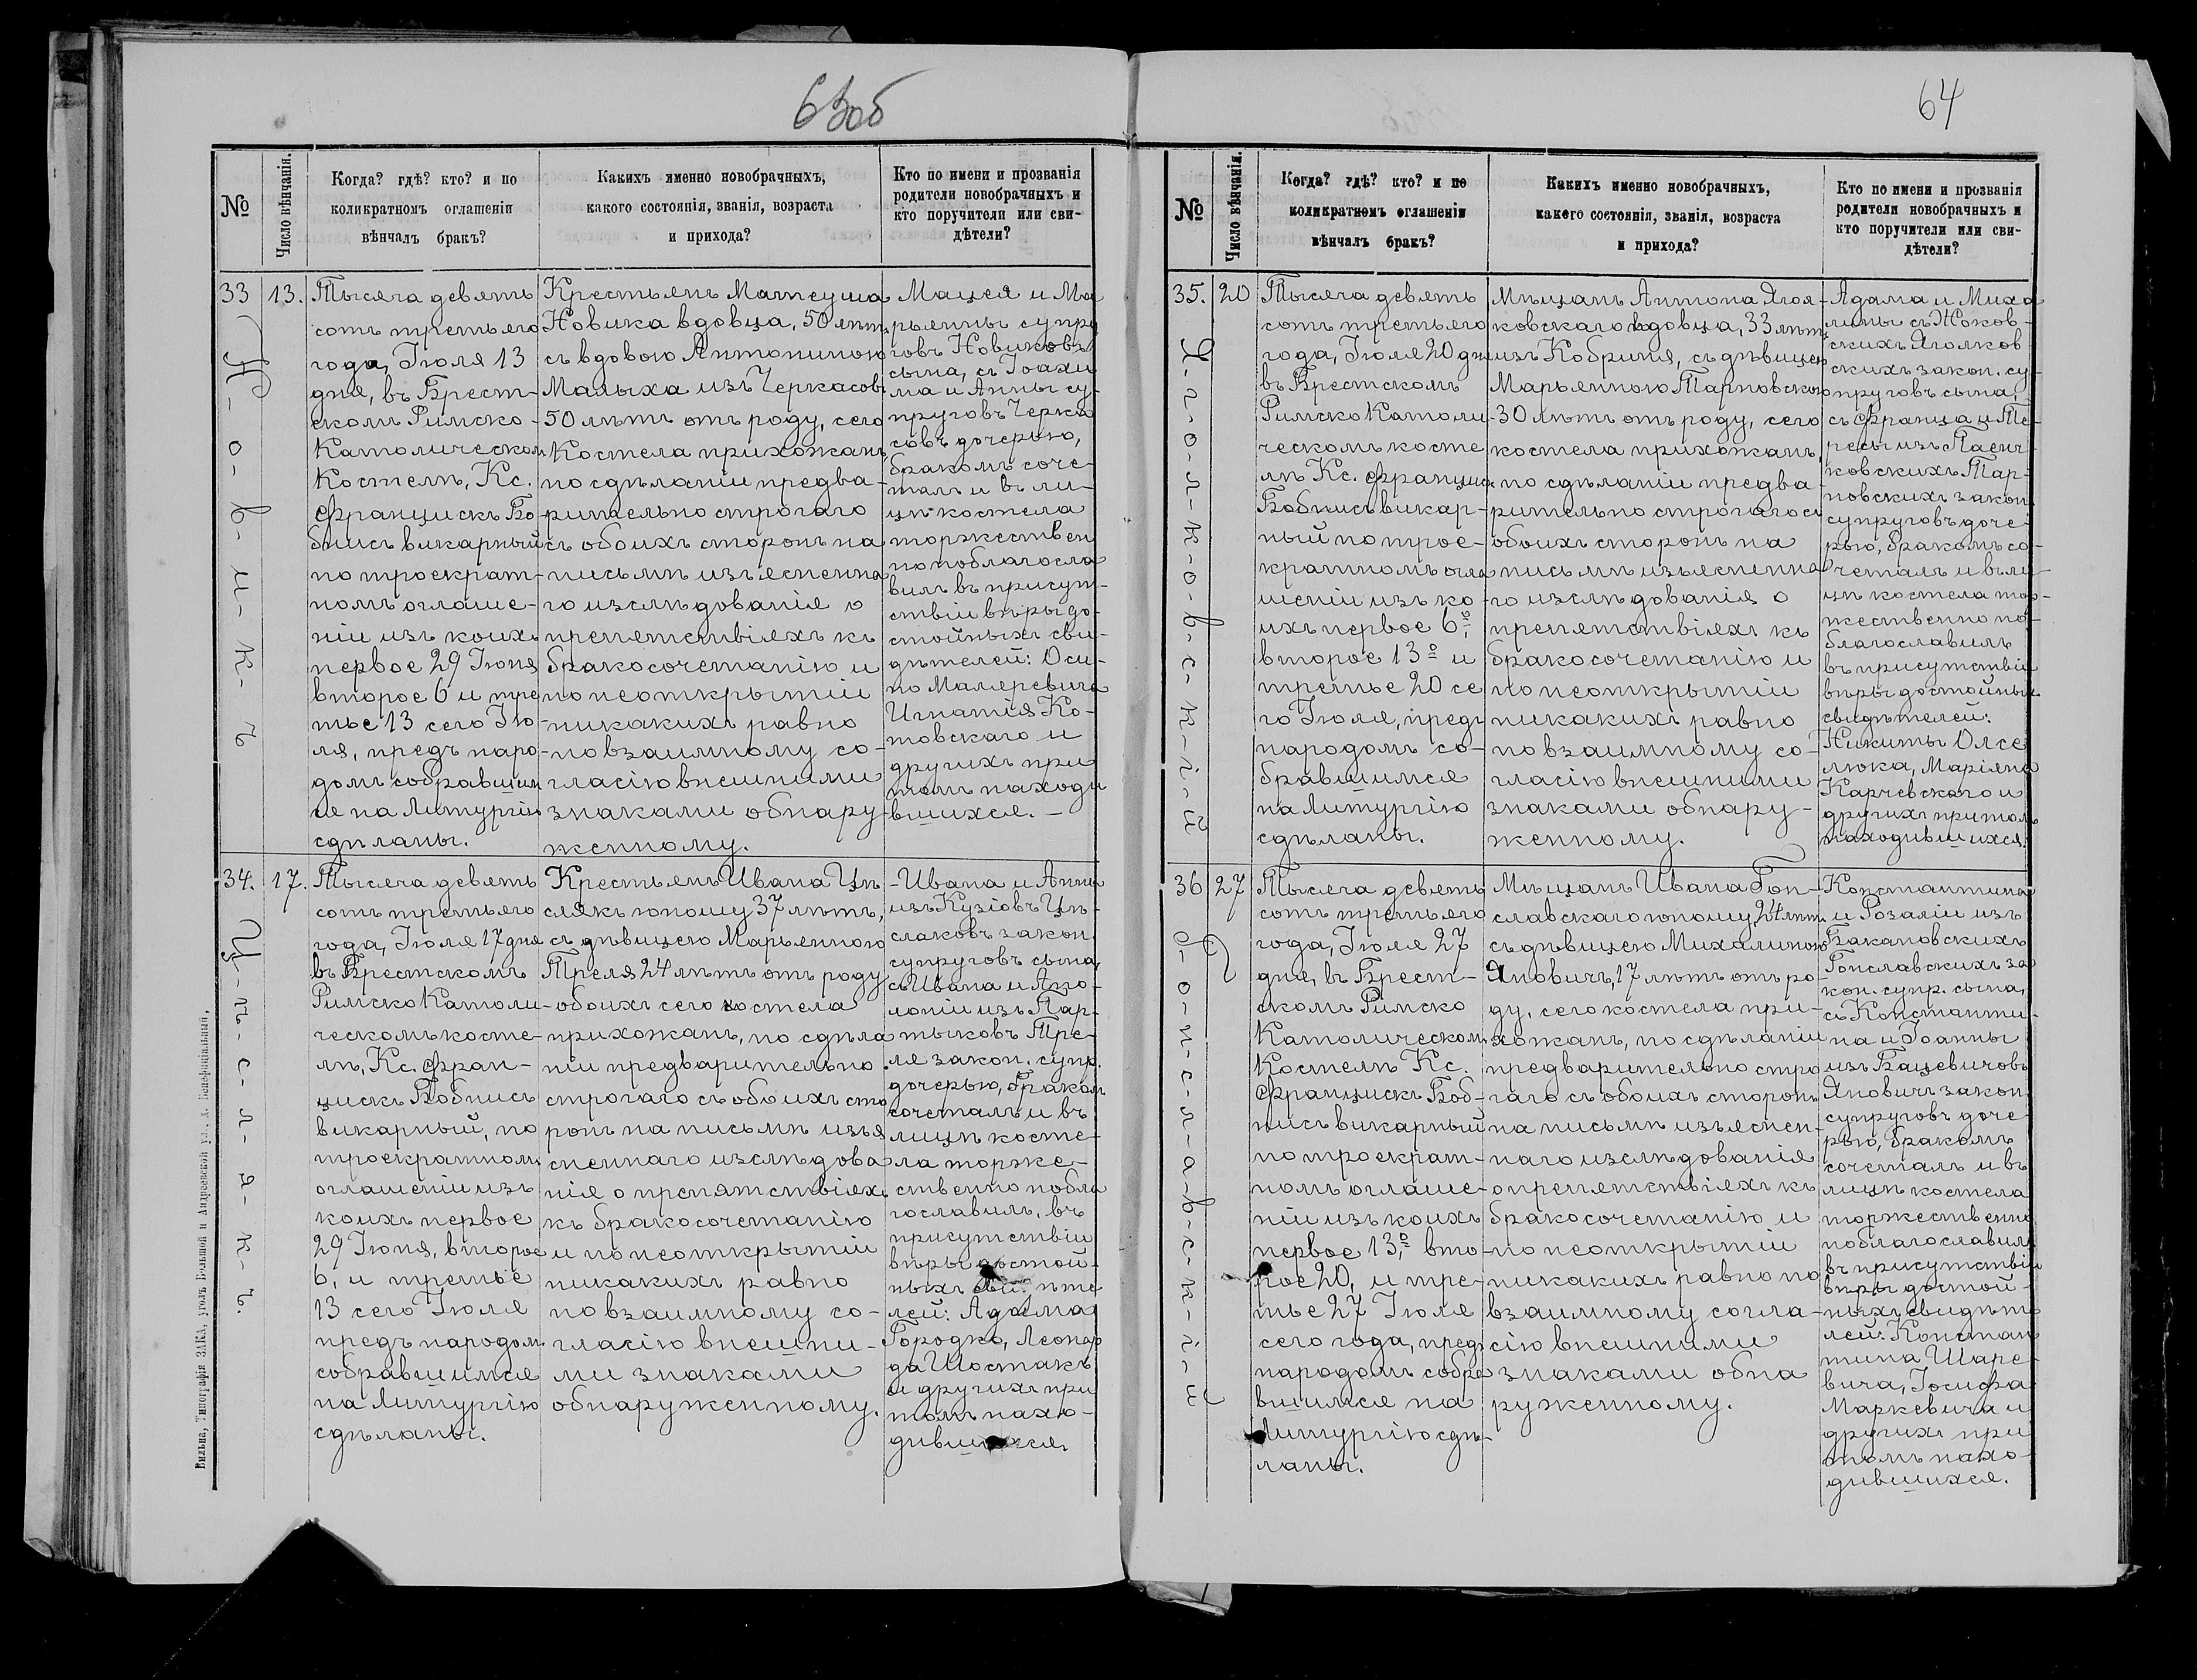 63об
№
Число вѣнчанія.
Когда? гдѣ? кто? и по
коликратномъ оглашеніи
вѣнчалъ бракъ?
Какихъ именно новобрачныхъ,
какого состоянія, званія, возраста
и прихода?
Кто по имени и прозванія
родители новобрачныхъ и
кто поручители или сви-
дѣтели?
33
Н-о-в-и-к-ъ
13.
Тысяча девять
сотъ третьяго
года, Іюля 13
дня, въ Брест-
скомъ Римско-
Католическом
Костелѣ, Кс.
Францискъ Бо-
бнисъ викарный
по троекрат-
номъ оглаше-
ніи изъ коихъ
первое 29 Іюня
второе 6 и тре
тье 13 сего Ію-
ля, предъ наро-
домъ собравшим
ся на Литургію
сдѣланы.
Крестьянъ Матеуша
Новика вдовца, 50 лѣтъ,
съ вдовою Антониною
Малыха изъ Черкасовъ
50 лѣтъ отъ роду, сего
Костела прихожанъ,
по сдѣланіи предва-
рительно строгаго
съ обоихъ сторонъ на
письмѣ изъясненна
го изслѣдованія о
препятствіяхъ къ
бракосочетанію и
по неоткрытіи
никакихъ равно
по взаимному со-
гласію внешними
знаками обнару-
женному.
Мацея и Ма
рьянны супру
говъ Новиковъ
сына, съ Іоахи
ма и Анны су-
пруговъ Черка
совъ дочерью,
бракомъ соче-
талъ и въ ли-
цѣ костела
торжествен
но поблагосла
вилъ въ присут-
ствіи вѣры до-
стойныхъ сви-
дѣтелей: Оси-
па Маляревича
Игнатія Ко-
товскаго и
другихъ при
томъ находи
вшихся.
34.
Ц-ѣ-с-л-я-к-ъ.
17.
Тысяча девять
сотъ третьяго
года, Іюля 17 дня
въ Брестскомъ
Римско Католи-
ческомъ косте-
лѣ, Кс. Фран-
цискъ Бобнисъ
викарный, по
троекратномъ
оглашеніи изъ
коихъ первое
29 Іюня, второе
6, и третье
13 сего Іюля
предъ народом
собравшимся
на Литургію
сдѣланы.
Крестьянъ Ивана Цѣ
слякъ юношу 37 лѣтъ,
съ дѣвицею Марьянною
Треля 24 лѣтъ отъ роду
обоихъ сего костела
прихожанъ, по сдѣла
ніи предварительно
строгаго съ обоихъ сто
ронъ на письмѣ изъя
сненнаго изслѣдова
нія о препятствіяхъ
къ бракосочетанію
и по неоткрытіи
никакихъ равно
по взаимному со-
гласію внешни-
ми знаками
обнаруженному.
Ивана и Анны
изъ Кузіовъ Цѣ-
слаковъ закон.
супруговъ сына,
съ Ивана и Апо-
лоніи изъ Пар-
тыковъ Тре-
ля закон. супр.
дочерью, браком
сочеталъ и въ
лицѣ косте-
ла торже-
ственно побла
гославилъ, въ
присутствіи
вѣры достой-
ныхъ ѣте
лей: Адама
Городко, Леонар
да Шостакъ
и других при
томъ нахо-
дившихся.
Вильна, Типографія ЗАКА, уголъ Большой и Андреевской ул.
64
№
Число вѣнчанія.
Когда? гдѣ? кто? и по
коликратномъ оглашеніи
вѣнчалъ бракъ?
Какихъ именно новобрачныхъ,
какого состоянія, званія, возраста
и прихода?
Кто по имени и прозванія
родители новобрачныхъ и
кто поручители или сви-
дѣтели?
35.
20
Тысяча девять
сотъ третьяго
года, Іюля 20 дня
въ Брестскомъ
Римско Католи-
ческомъ косте
лѣ Кс. Францис.
Бобнисъ викар-
ный по трое-
кратномъ огла
шеніи изъ ко-
ихъ первое 6º,
второе 13º и
третье 20 се
го Іюля, предъ
народомъ со-
бравшимся
на Литургію
сдѣланы.
Мѣщанъ Антона Ягол-
ковскаго вдовца, 33 лѣтъ
изъ Кобриня, съ дѣвицею
Марьянною Тарновскою
30 лѣтъ отъ роду, сего
костела прихожанъ,
по сдѣланіи предва-
рительно строгаго съ
обоихъ сторонъ на
письмѣ изъясненна
го изслѣдованія о
препятствіяхъ къ
бракосочетанію и
по неоткрытіи
никакихъ равно
по взаимному со-
гласію внешними
знаками обнару-
женному.
Адама и Миха
лины съ Жоков-
скихъ Яголков
скихъ закон. су-
пруговъ сына,
съ Франца и Те-
ресы изъ
ковскихъ Тар-
новскихъ закон.
супруговъ доче-
рью, бракомъ со-
четалъ и въ ли-
цѣ костела тор-
жественно по-
благославилъ
въ присутствіи
вѣры достойныхъ
свидѣтелей:
Никиты Олсе
люка, Маріяна
Карчевскаго и
другихъ притом
находившихся.
36
Г-о-н-с-л-а-в-с-к-і-й
27
Тысяча девять
сотъ третьяго
года, Іюля 27
дня, въ Брест-
скомъ Римско
Католическом
Костелѣ Кс.
Францискъ Боб-
нисъ викарный
по троекрат-
номъ оглаше-
ніи изъ коихъ
первое 13º, вто-
рое 20, и тре-
тье 27 Іюля
сего года, предъ
народомъ собра
вшимся на
Литургію сдѣ-
ланы.
Мѣщанъ Ивана Гон-
славскаго юношу, 24 лѣтъ
съ дѣвицею Михалиною
Яновичъ, 17 лѣтъ отъ ро-
ду, сего костела при-
хожанъ, по сдѣланіи
предварительно стро
гаго съ обоихъ сторонъ
на письмѣ изъяснен-
наго изслѣдованія
о препятствіяхъ къ
бракосочетанію и
по неоткрытіи
никакихъ равно по
взаимному согла-
сію внешними
знаками обна
руженному.
Константина
и Розаліи изъ
Бакановскихъ
Гонславскихъ за
кон. супр. сына,
съ Константи-
на и Іоанны
изъ Бацевичовъ
Яновичъ закон.
супруговъ доче-
рью, бракомъ
сочеталъ и въ
лицѣ костела
торжественно
поблагославилъ
въ присутствіи
вѣры достой-
ныхъ свидѣте
лей: Констан
тина Шаре-
вича, Іосифа
Маркевича и
другихъ при
томъ нахо-
дившихся.